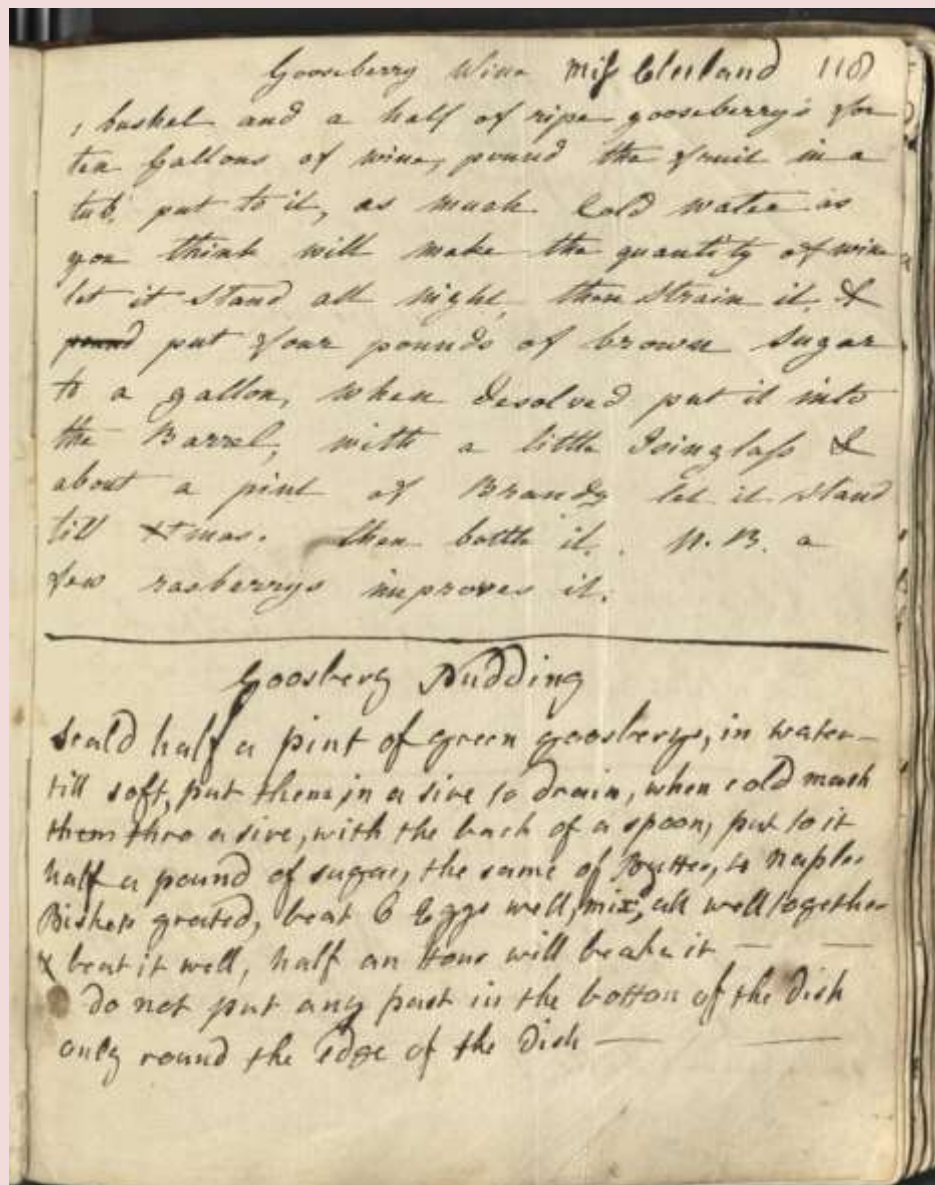 Gooseberry Wine Miss Cleiland 118
1 bushel and a half of ripe gooseberry's for
ten Gallons of wine, pound the fruit in a
tub, put to it, as much Cold water as
you think will make the quantity of wine
let it stand all night, then strain it &
pound put four pounds of brown Sugar
to a gallon, when desolved put it into
the Barrel, with a little Isinglass &
about a pint of Brandy let it stand
till Xmas. then bottle it. N.B. a
few rasberrys improves it.
Goosbery Pudding
Scald half a pint of green goosberys, in water
till soft, put them in a sive to drain, when cold mash
them thro a sive, with the back of a spoon, put to it
half a pound of sugar, the same of Butter, Naples
Biskets grated, beat 6 Eggs well, mix all well together
& beat it well, half an hour will beake it
do not put any past in the botton of the Dish
only round the edge of the Dish